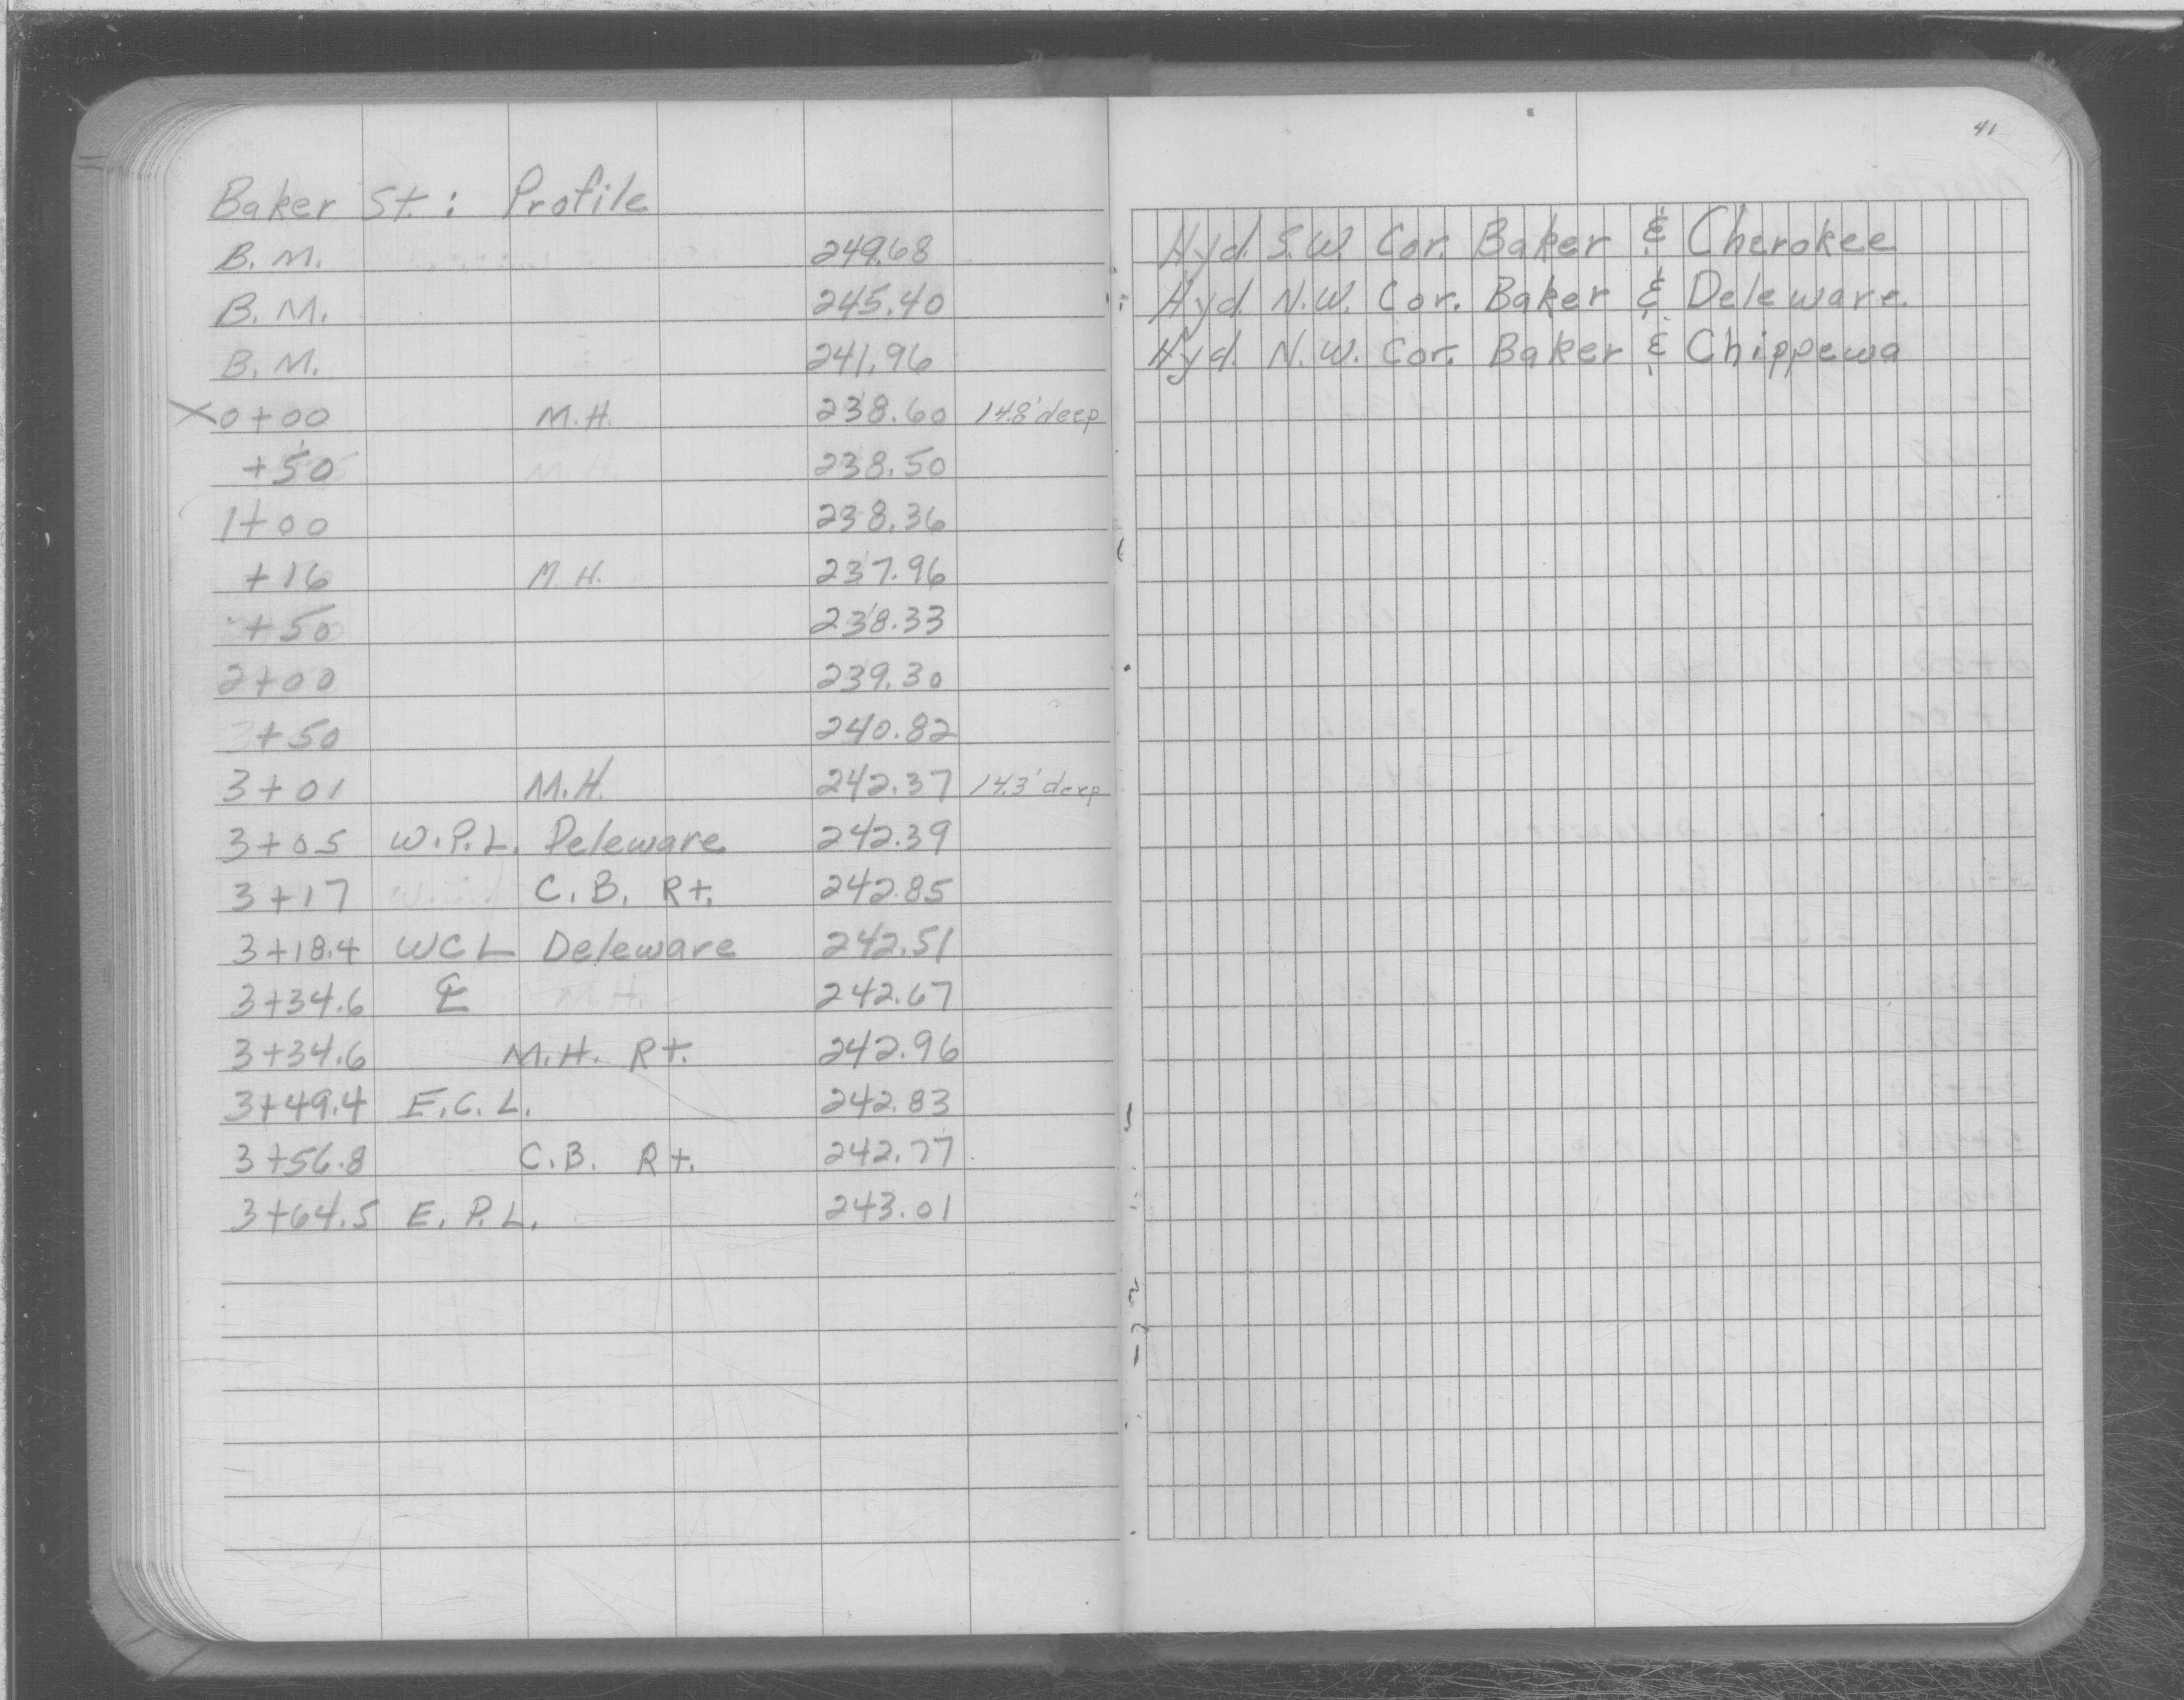 41
Baker St.: Profile
B.M. 249.68 Hyd. S.W. Cor. Baker & Cherokee
B.M. 245.40 Hyd. N.W. Cor. Baker & Deleware.
B.M. 241.96 Hyd. N.W. Cor. Baker & Chippewa
X 0+00 M.H. 238.60 14.8' deep
+50 238.50
1+00 238.36
+16 M.H. 237.96
+50 238.33
2+00 239.30
+50 240.82
3+01 M.H. 242.37 14.3' deep
3+05 W.P.L. Deleware 242.39
3+17 C.B. Rt. 242.85
3+18.4 WCL Deleware 242.51
3+34.6 ℄ 242.67
3+34.6 M.H. Rt. 242.96
3+49.4 E.C.L. 242.83
3+56.8 C.B. Rt. 242.77
3+64.5 E.P.L. 243.01